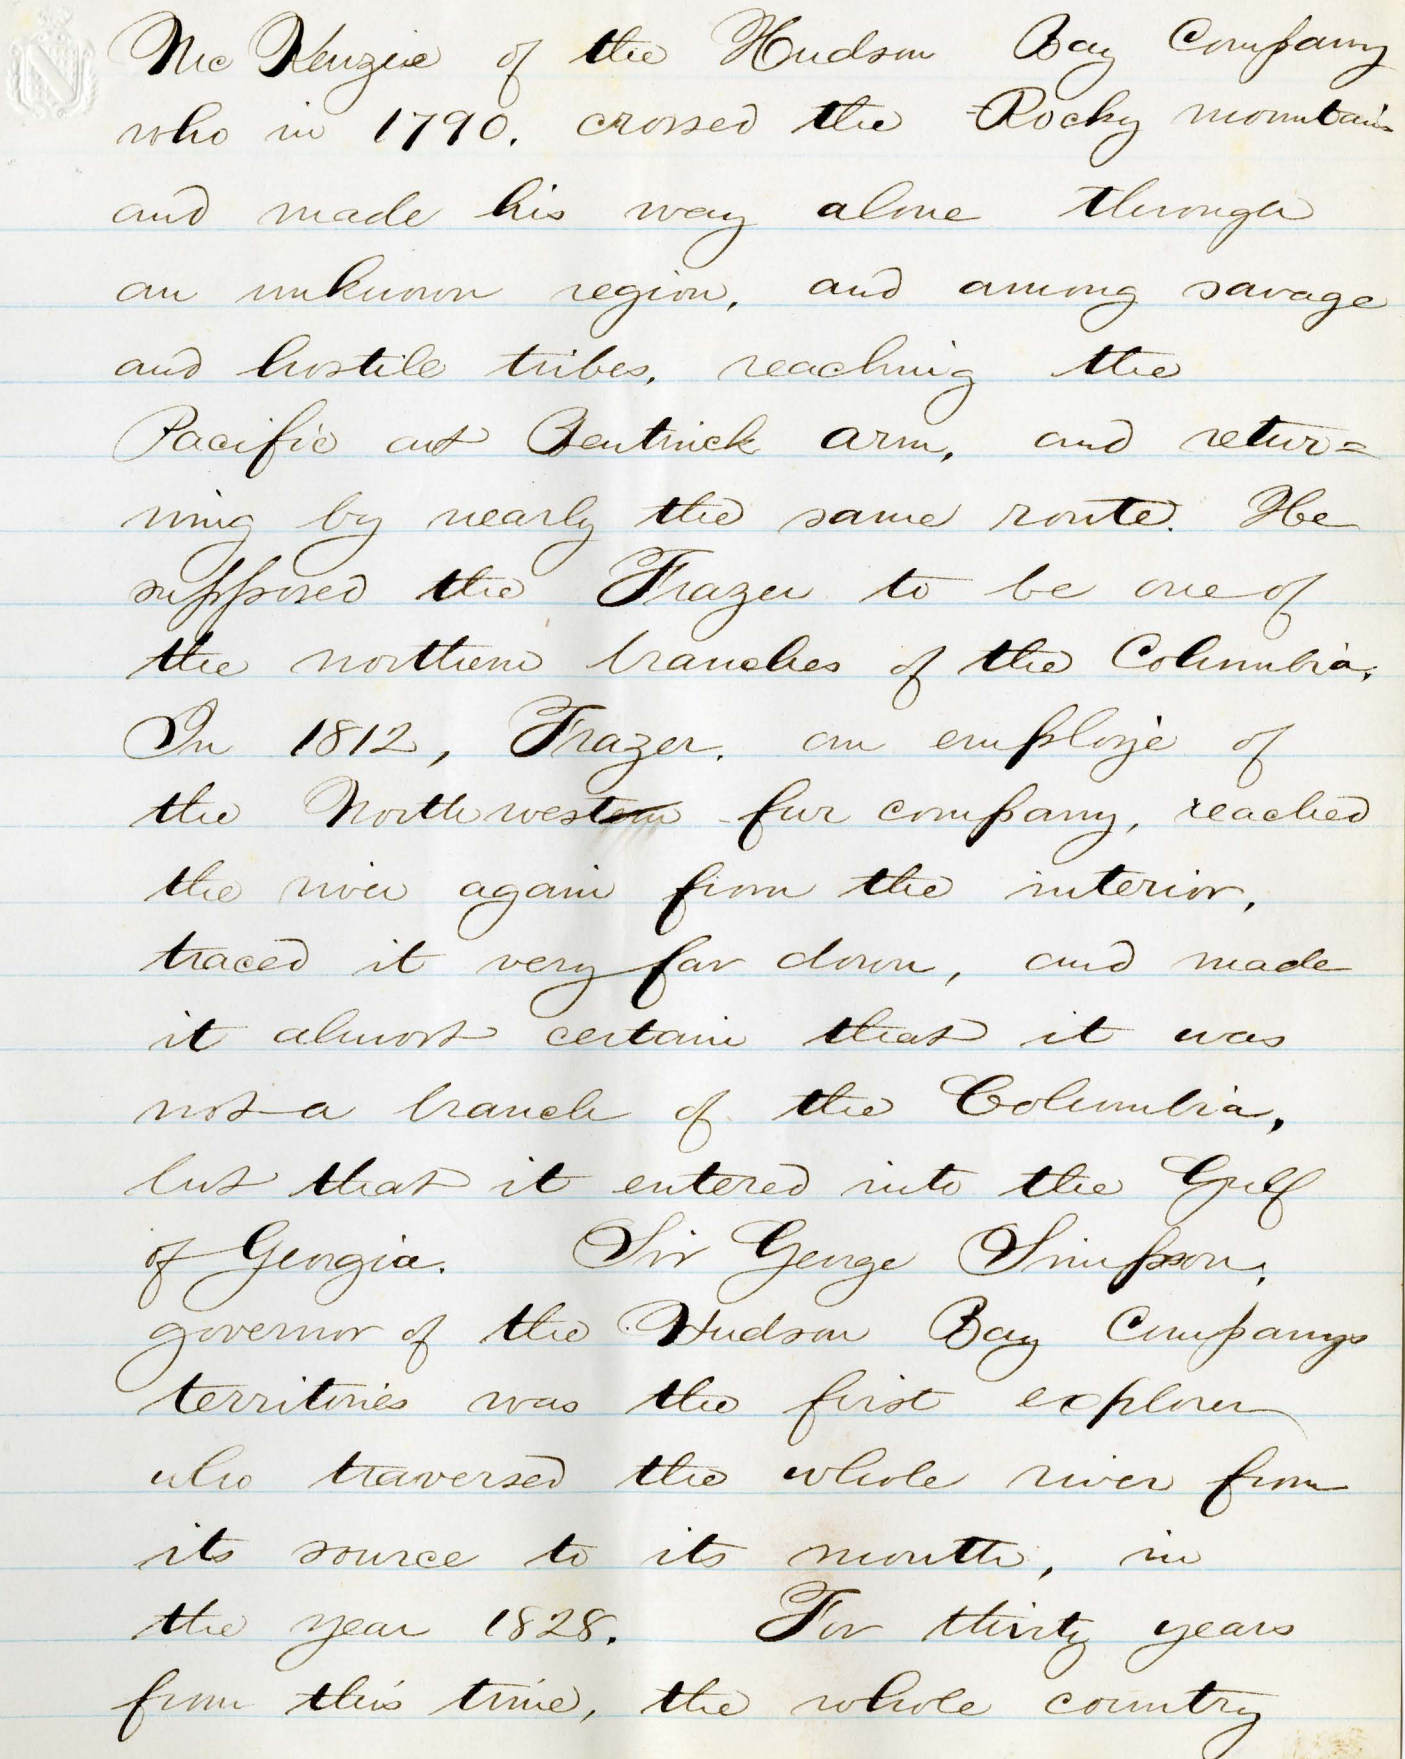 N
McKenzie of the Hudson Bay Company
who in 1790, crossed the Rocky mountains
and made his way alone through
an unknown region, and among savage
and hostile tribes, reaching the
Pacific at Bentinck arm, and retur=
ning by nearly the same route. He
supposed the Frazer to be one of
the northern branches of the Columbia.
In 1812, Frazer, an employé of
the Northwestern fur company, reached
the river again from the interior,
traced it very far down, and made
it almost certain that it was
not a branch of the Columbia,
but that it entered into the Gulf
of Georgia. Sir George Simpson,
governor of the Hudson Bay Companys
territories was the first explorer
who traversed the whole river from
its source to its mouth, in
the year 1828. For thirty years
from this time, the whole country